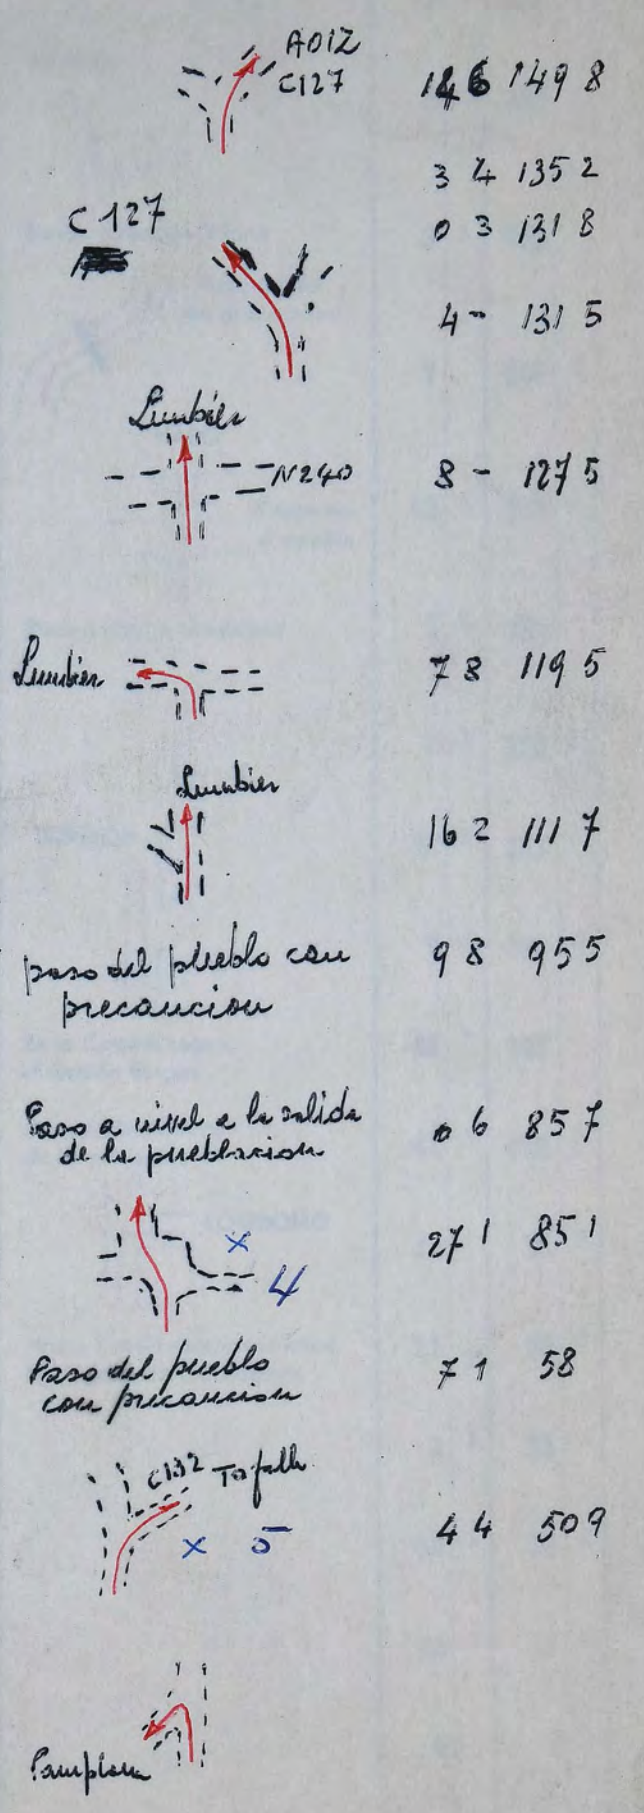 AOIZ
C127 146 149 8
3 4 135 2
C 127 0 3 131 8
4 - 131 5
Lumbier
N240 8 - 127 5
Lumbier 7 8 119 5
Lumbier
16 2 111 7
paso del pueblo con 9 8 95 5
precaucion
Paso a nivel a la salida 0 6 85 7
de la pueblacion
x 27 1 85 1
4
Paso del pueblo 7 1 58
con precaucion
C132 Tafalla
x 5 4 4 50 9
Pamplona